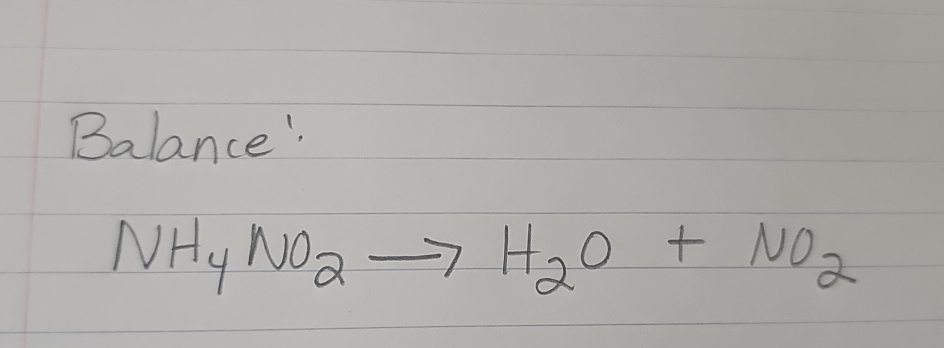 Balance:
NH₄NO₂ → H₂O + NO₂